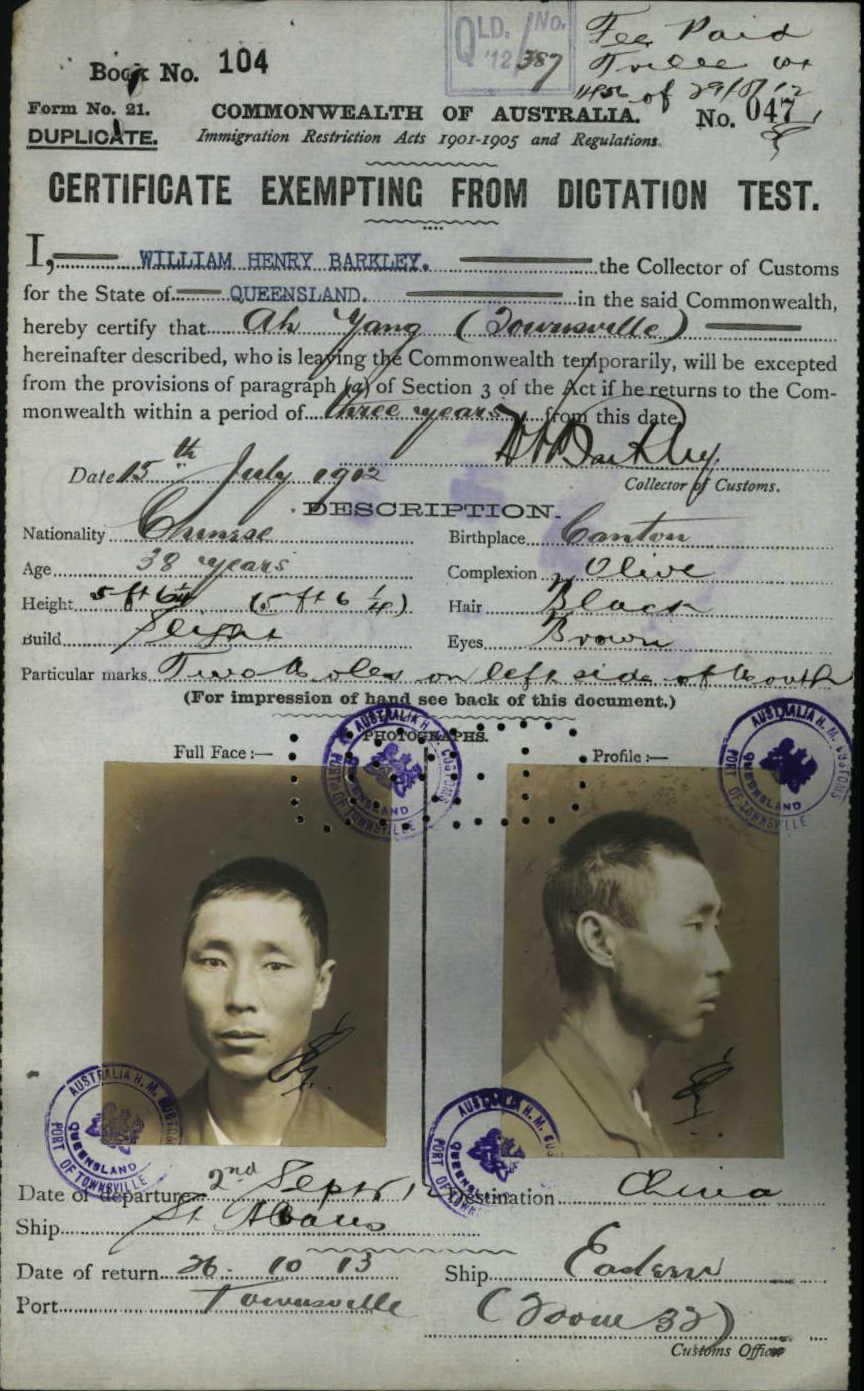 QLD. No.
'12 387
Fee Paid
of 29/8/12
Book No. 104
Form No. 21.
COMMONWEALTH OF AUSTRALIA.
No. 047
DUPLICATE.
Immigration Restriction Acts 1901-1905 and Regulations.
CERTIFICATE EXEMPTING FROM DICTATION TEST.
I, WILLIAM HENRY BARKLEY. the Collector of Customs
for the State of QUEENSLAND. in the said Commonwealth,
hereby certify that Ah Yang (Townsville)
hereinafter described, who is leaving the Commonwealth temporarily, will be excepted
from the provisions of paragraph (a) of Section 3 of the Act if he returns to the Com-
monwealth within a period of three years from this date
W H Barkley
Date 15th July 1912
Collector of Customs.
DESCRIPTION.
Nationality Chinese
Birthplace Canton
Age 38 years
Complexion Olive
Height 5 ft 6¼ (5 ft 6 ¼)
Hair Black
Build Slight
Eyes Brown
Particular marks Two Moles on left side of Mouth
(For impression of hand see back of this document.)
PHOTOGRAPHS.
Full Face :—
Profile :—
AUSTRALIA H. M. CUSTOMS
QUEENSLAND
PORT OF TOWNSVILLE
AUSTRALIA H. M. CUSTOMS
QUEENSLAND
PORT OF TOWNSVILLE
AUSTRALIA H. M. CUSTOMS
QUEENSLAND
PORT OF TOWNSVILLE
AUSTRALIA H. M. CUSTOMS
QUEENSLAND
PORT OF TOWNSVILLE
Date of departure 2nd Septr 12
Destination China
Ship St Albans
Date of return 26 - 10 13
Ship Eastern
Port Townsville
Customs Officer